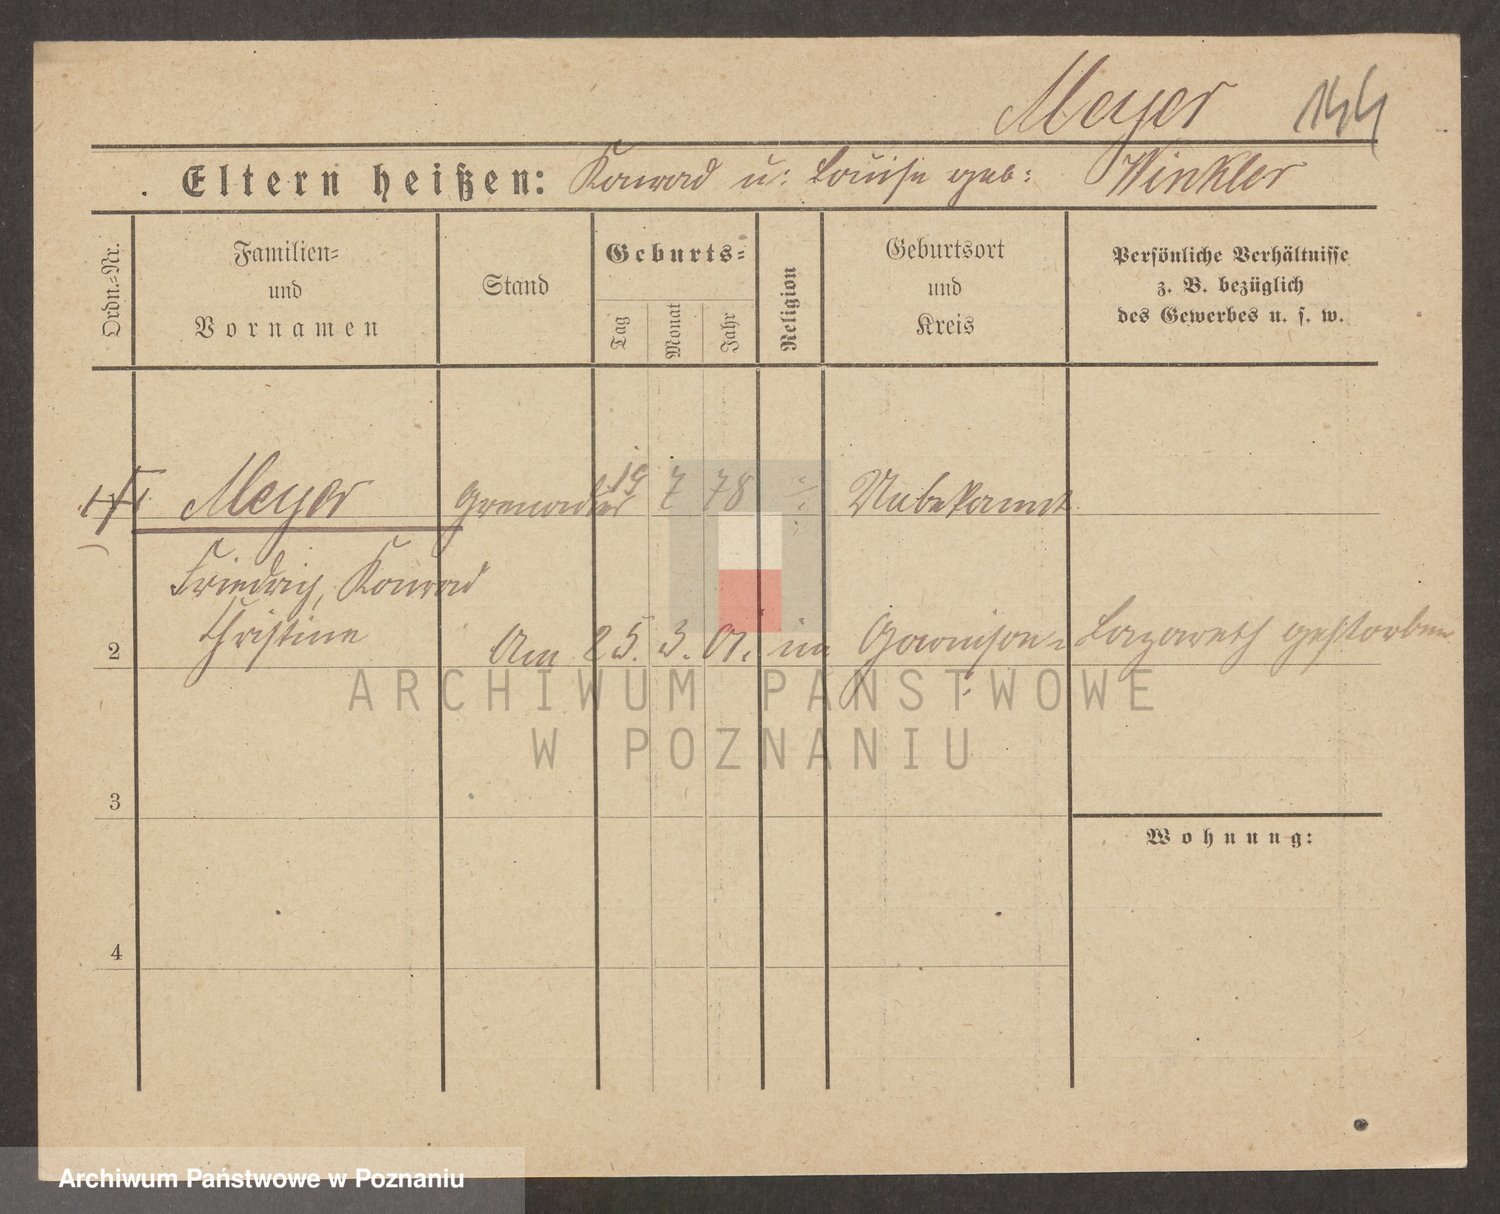 Meyer 144
Eltern heißen: Konrad u: Louise geb: Winkler
Ordn.=Nr.
Familien=
und
Vornamen
Stand
Geburts=
Tag
Monat
Jahr
Religion
Geburtsort
und
Kreis
Persönliche Verhältnisse
z. B. bezüglich
des Gewerbes u. s. w.
Meyer Grenadier 19 7 78 Unbekannt
Friedrich, Konrad
Christine
2 Am 25. 3. 01. im Garnison= Lazareth gestorben.
ARCHIWUM PAŃSTWOWE
W POZNANIU
3
Wohnung:
4
Archiwum Państwowe w Poznaniu